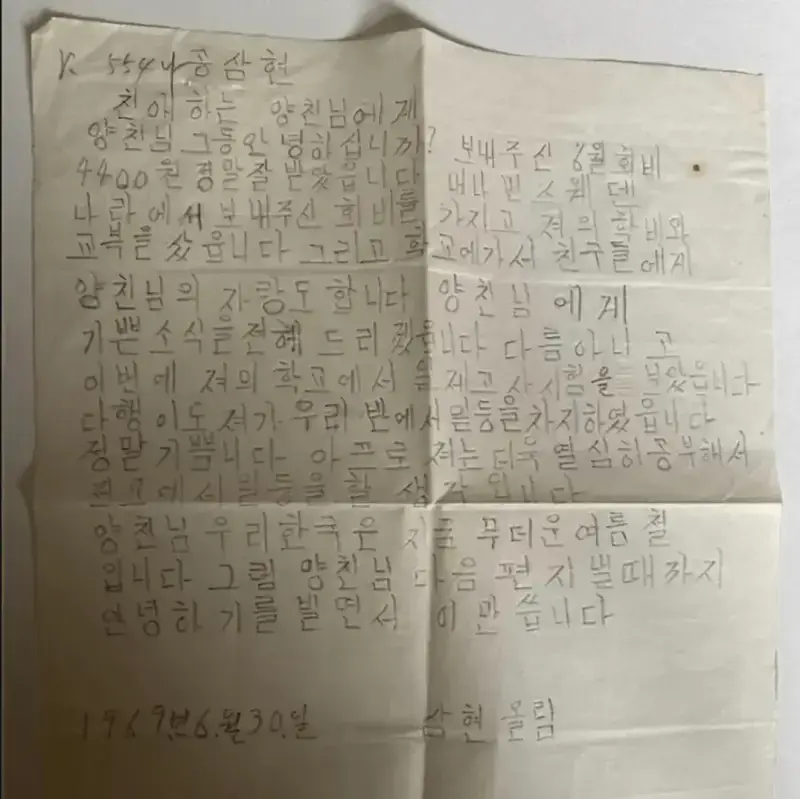 Y. 554나 공삼현
친애하는 양친님에게
양친님 그동안 녕하십니까? 보내주신 6월 회비
4400원 정말잘 받았읍니다 내나 민스웨덴
나라에서 보내주신 회비를 가지고 져의 학비와
교복을 샀읍니다 그리고 학교에가서 친구들에게
양친님의 자랑도 합니다 양친님에게
기쁜소식을전해 드리겠읍니다 다름아니고
이번에 져의 학교에서 시험을 았읍니다
다행이도 져가 우리 반에서 일등을차지하였읍니다
정말기쁨니다 아프로 져는 더욱 열심히공부해서
전교에서일등을 할 생각입니다
양친님 우리한국은 지금 무더운여름철
입니다 그럼 양친님 다음 편지쓸때까지
안녕하기를빌면서 이만 씁니다
1969년6.월30.일 삼현 올림